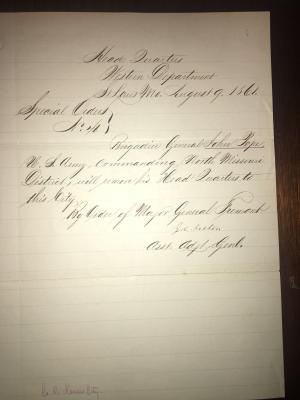 Head Quarters
Western Department
St Louis Mo. August 9. 1861.
Special Orders
No 4
Brigadier General John Pope
U. S. Army, Commanding North Missouri
District, will remove his Head Quarters to
this City.
By Order of Major General Fremont
Asst Adjt Genl.